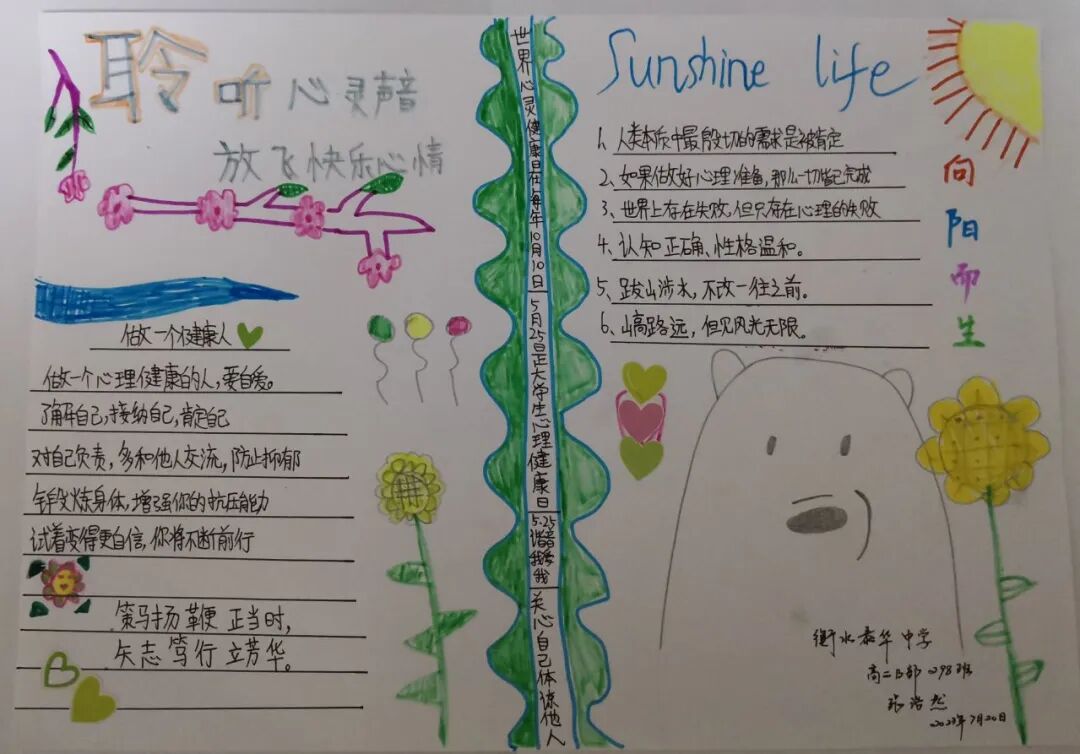 聆听心灵声音
放飞快乐心情
做一个健康人
做一个心理健康的人，要自爱。
了解自己，接纳自己，肯定自己
对自己负责，多和他人交流，防止抑郁
锻炼身体，增强你的抗压能力
试着变得更自信，你将不断前行
策马扬鞭正当时，
矢志笃行立芳华。
世界心灵健康日在每年10月10日
5月25日正大学生心理健康日
5.25谐音我爱我
关心自己体谅他人
Sunshine life
1、人类本质中最殷切的需求是被肯定
2、如果做好心理准备，那么一切皆已完成
3、世界上存在失败，但只存在心理的失败
4、认知正确、性格温和。
5、跋山涉水，不改一往之前。
6、山高路远，但见风光无限。
向阳而生
衡水泰华中学
高二B部0298班
张浩然
2023年7月20日